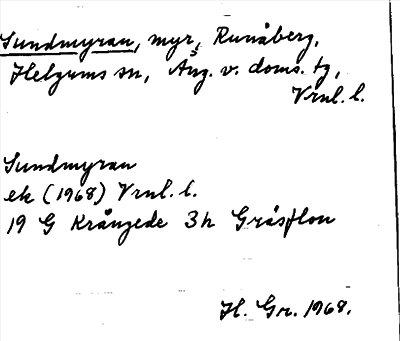 Sundmyran, myr, Runåberg,
Helgums sn, Ång. v. doms. tg,
Vrnl. l.
Sundmyran
ek (1968) Vrnl. l.
19 G Krångede 3h Gråsjlon
H. Gr. 1968.